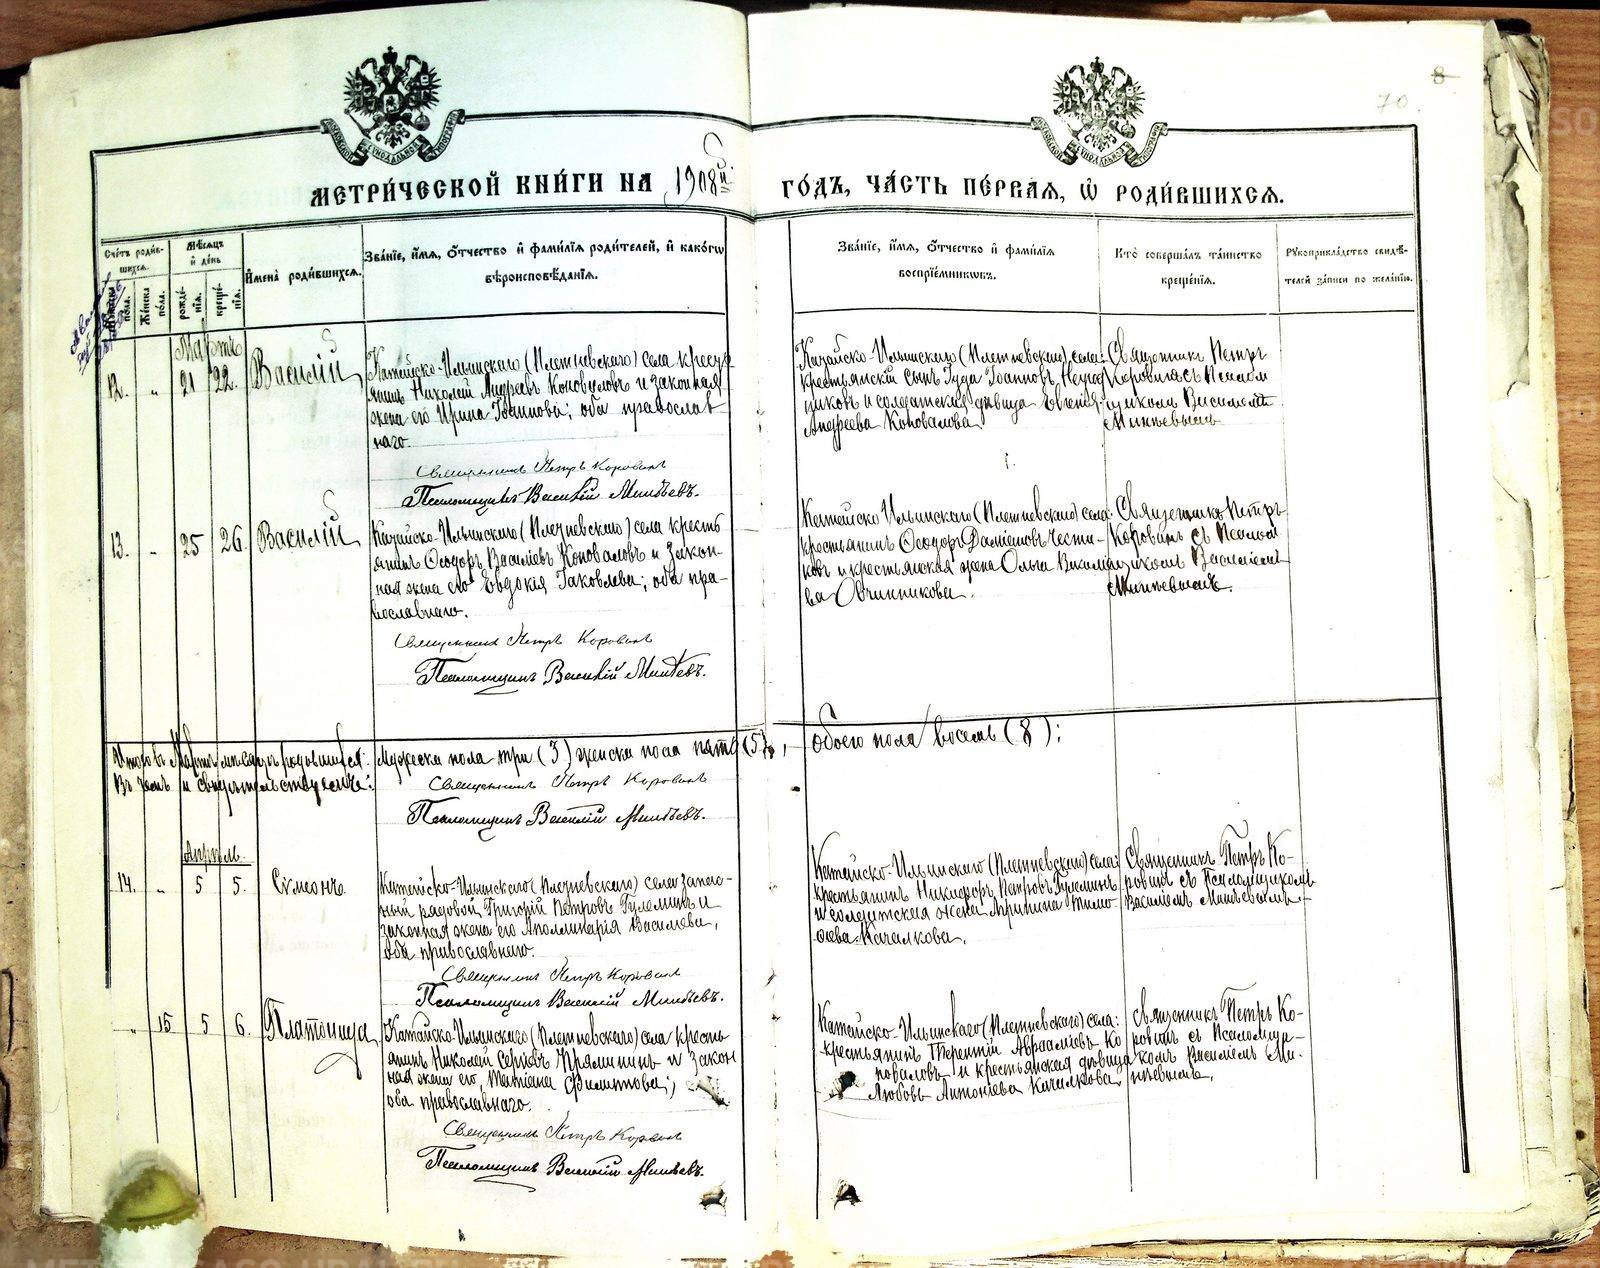 8
70.
МЕТРИ́ЧЕСКОЙ КНИ́ГИ НА 1908й
ГО́ДЪ, ЧА́СТЬ ПЕ́РВАЯ, Ѡ҆ РОДИ́ВШИХСЯ.
Сче́тъ роди́в-
шихся.
Мѣ́сяцъ
и҆ де́нь
И҆мена̀ роди́вшихся.
Зва́нїе, и҆́мя, ѻ҆́тчество и҆ фами́лїя роди́телей, и҆ како́гѡ
вѣроисповѣ́данїя.
Зва́нїе, и҆́мя, ѻ҆́тчество и҆ фами́лїя
воспрїе́мникѡвъ.
Кто̀ соверша́лъ та́инство
креще́нїя.
Рꙋкоприкла́дство свидѣ́-
телей за́писи по жела́нїю.
пола.
Же́нска
по́ла.
рожде́-
нїя.
креще́-
нїя.
Мартъ
12. " 21 22. Василій
Катайско-Ильинскаго (Плетневскаго) села крестья
янинъ Николай Андреевъ Коноваловъ и законная
жена его Ирина Іоаннова; оба православ
наго.
Священникъ Петръ Коровинъ
Псаломщикъ Василій Минѣевъ.
Катайско-Ильинскаго (Плетневскаго) села:
крестьянскій сынъ Іуда Іоанновъ
и солдатская дѣвица Евгенія
Андреева Коновалова.
Священникъ Петръ
Коровинъ съ Псалом
щикомъ Василіемъ
Минѣевымъ
13. " 25 26. Василій
Катайско-Ильинскаго (Плетневскаго) села кресть
янинъ Ѳеодоръ Васильевъ Коноваловъ и закон-
ная жена его Евдокія Іаковлева; оба пра-
вославнаго.
Священникъ Петръ Коровинъ
Псаломщикъ Василій Минѣевъ.
Катайско Ильинскаго (Плетневскаго) села:
крестьянинъ Ѳеодоръ Даміановъ Чести-
ковъ и крестьянская жена Ольга
ва Овчинникова.
Священникъ Петръ
Коровинъ съ Псалом
щикомъ Василіемъ
Минѣевымъ.
Итого въ Мартѣ мѣсяцѣ родившихся: Мужеска пола три (3) женска пола пять (5), обоего пола восемь (8);
Въ чемъ и свидѣтельствуемъ:
Священникъ Петръ Коровинъ
Псаломщикъ Василій Минѣевъ.
Апрѣль.
14. " 5 5. Сѵмеонъ.
Катайско-Ильинскаго (Плетневскаго) села запас-
ный рядовой Григорій Петровъ Гуселинъ и
законная жена его Аполлинарія Васильева,
оба православнаго.
Священникъ Петръ Коровинъ
Псаломщикъ Василій Минѣевъ.
Катайско-Ильинскаго (Плетневскаго) села:
крестьянинъ Никифоръ Петровъ
и солдатская жена Агрипина Тимо
ѳеева Качалкова.
Священникъ Петръ Ко-
ровинъ съ Псаломщикомъ
Василіемъ Минѣевымъ.
" 15 5 6. Платонида
Катайско-Ильинскаго (Плетневскаго) села кресть
янинъ Николай Сергіевъ Прялитинъ и закон
ная жена его, Татіана Филиппова;
оба православнаго.
Священникъ Петръ Коровинъ
Псаломщикъ Василій Минѣевъ.
Катайско-Ильинскаго (Плетневскаго) села:
крестьянинъ Терентій Авраміевъ Ко
новаловъ и крестьянская дѣвица
Любовь Антоніева Качалкова,
Священникъ Петръ Ко-
ровинъ съ Псаломщи-
комъ Василіемъ Ми-
нѣевымъ.